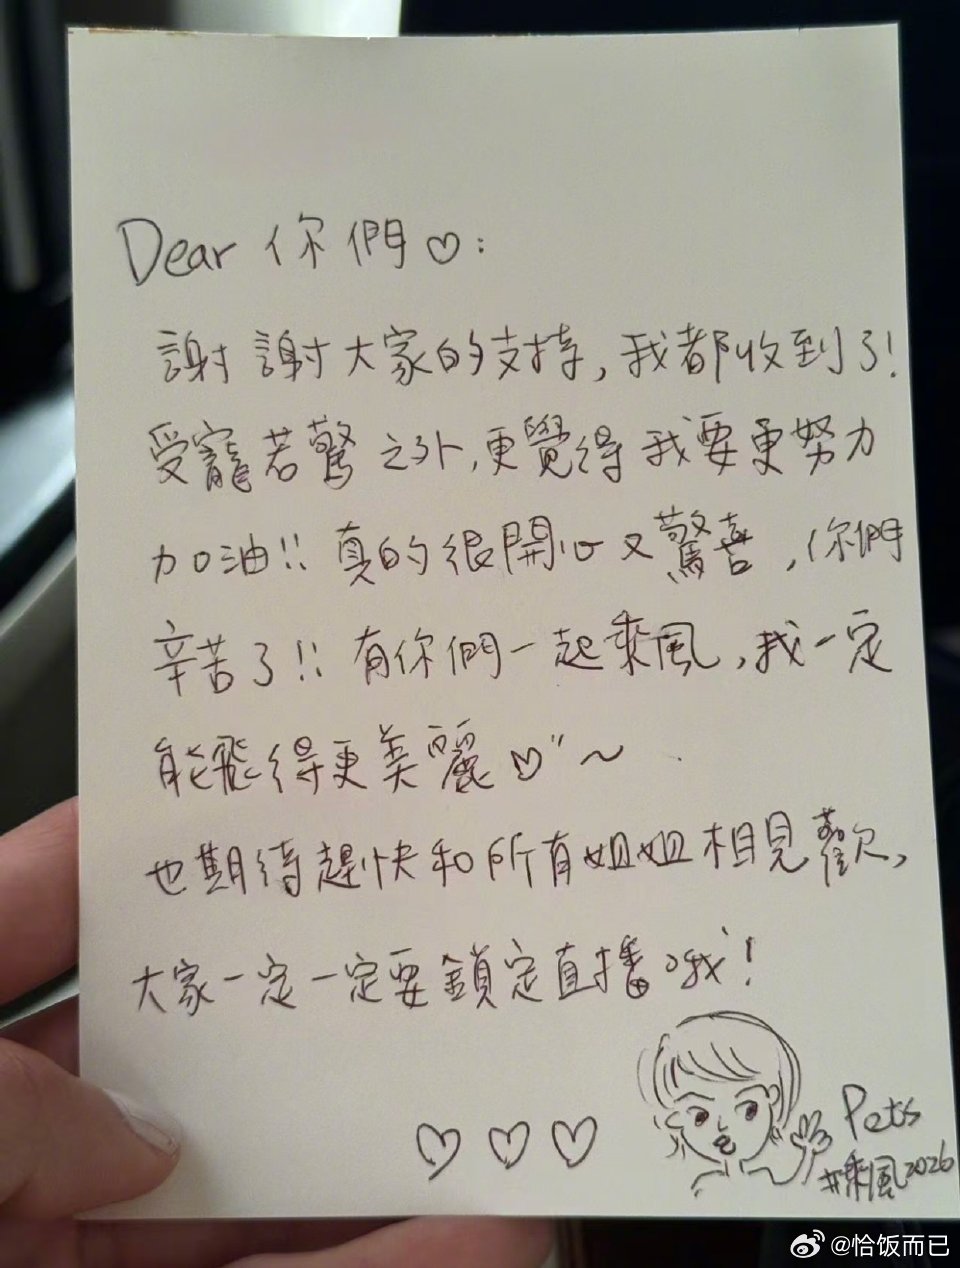 Dear 你們♡:
謝謝大家的支持,我都收到了!
受寵若驚之外,更覺得我要更努力
加油!! 真的很開心又驚喜,你們
辛苦了!! 有你們一起乘風,我一定
能飛得更美麗♡"~
也期待趕快和所有姐姐相見歡,
大家一定一定要鎖定直播哦!
♡♡♡
Pets
#乘風2026
@恰饭而已